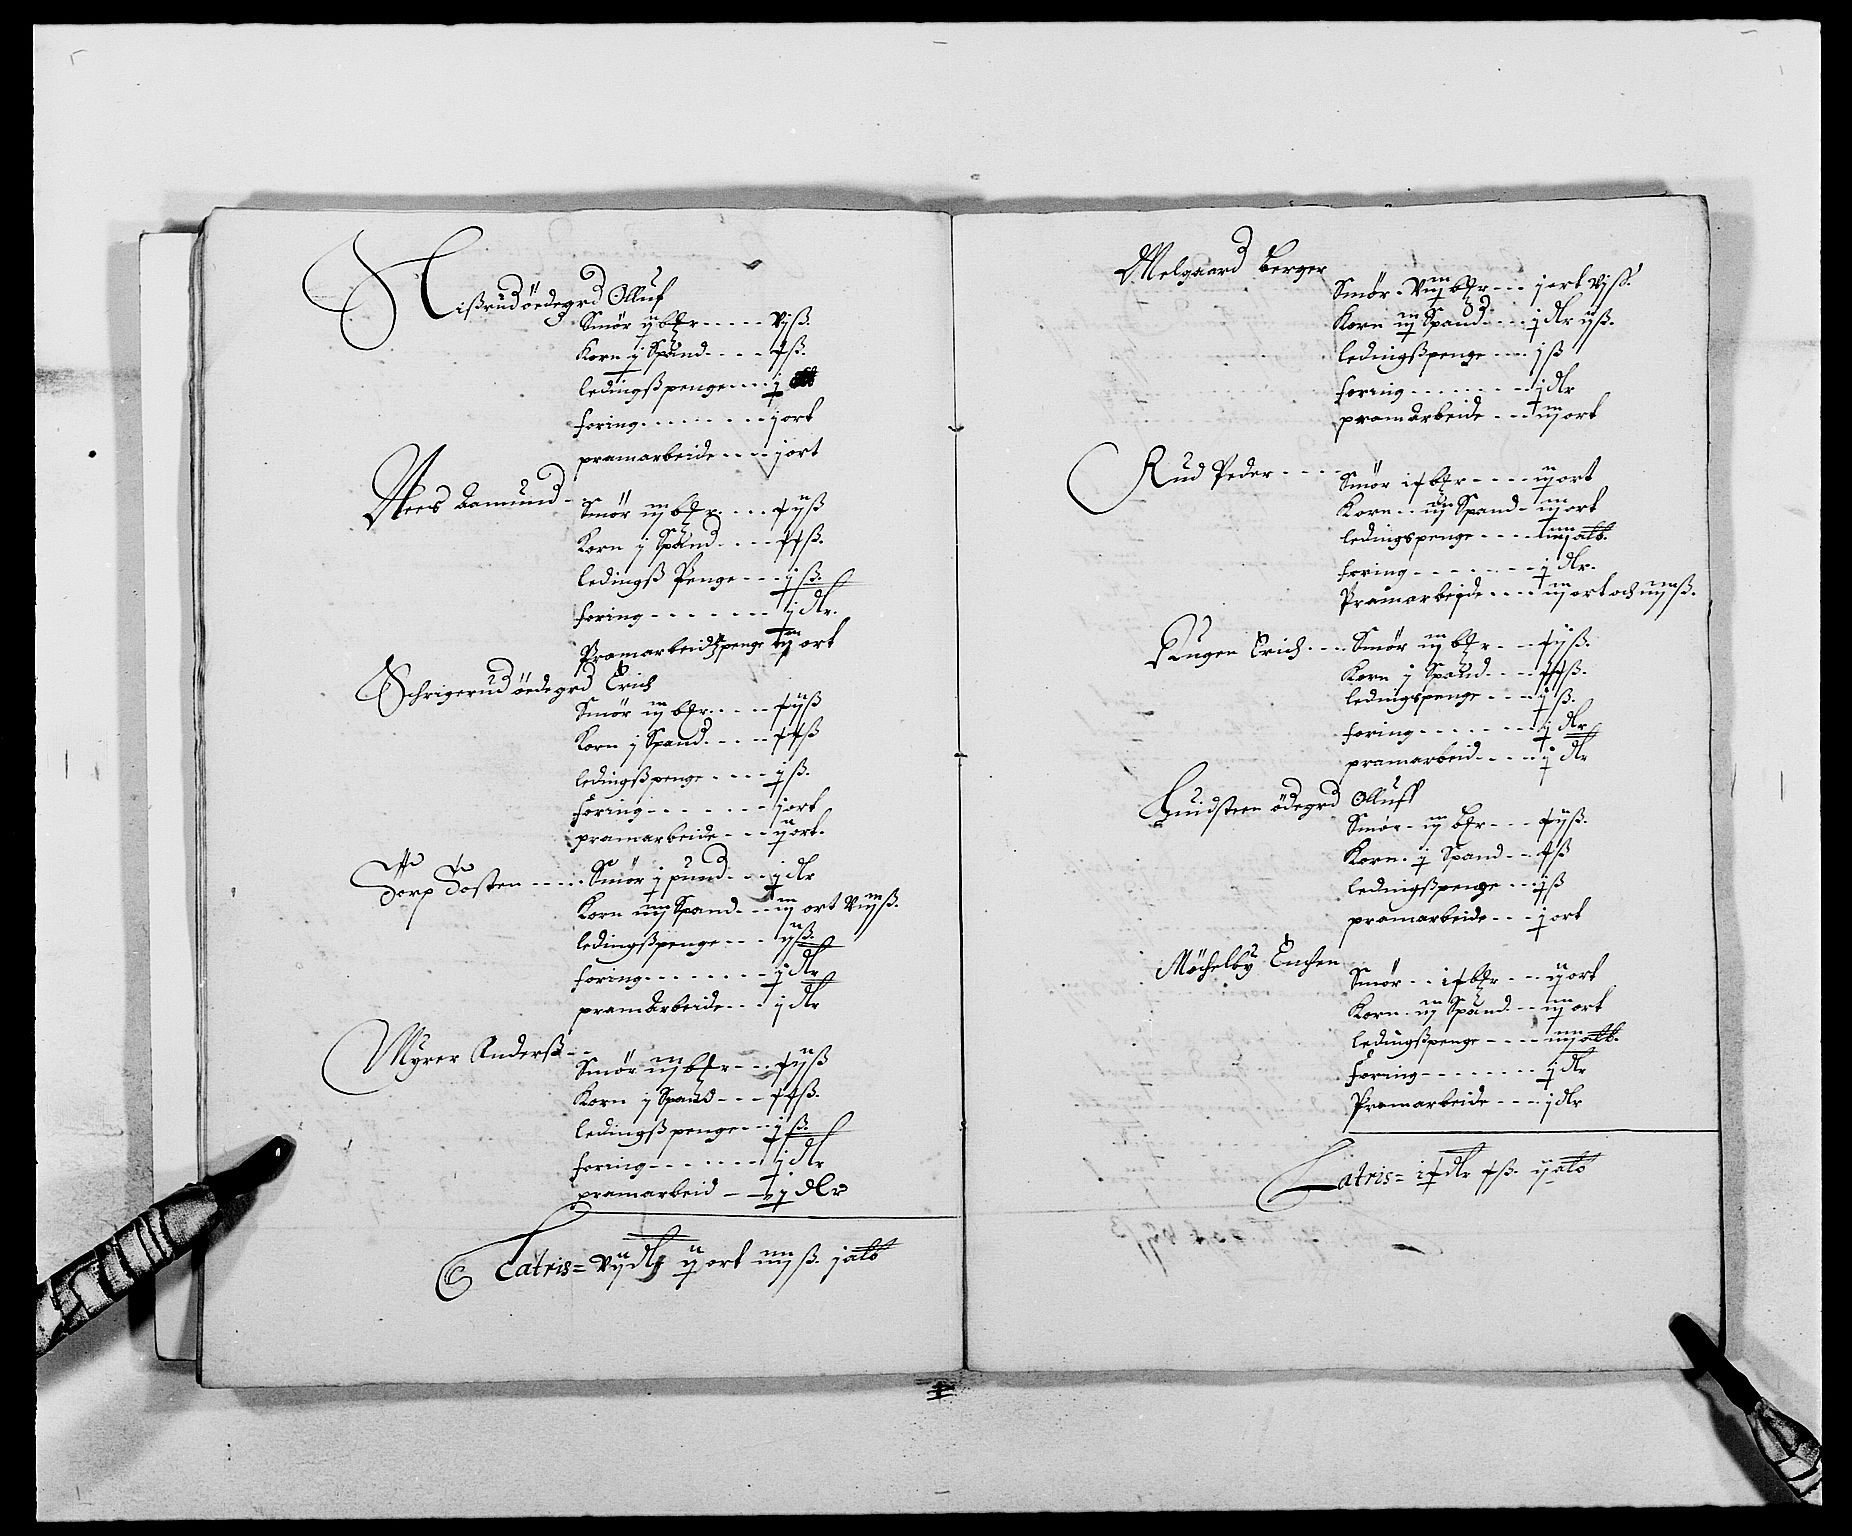 Hißrud ödegrd Olluf
Smör ij bℓr - - - - - vj ß.
Korn j Spand - - - - x ß.
ledingßpenge - - - j
foring - - - - - - - - j ort
pramarbeide - - - - j ort
Nees Aamund - -
Smör iij bℓr - - - - xij ß
Korn j Spand - - - - xx ß.
ledingß Penge - - - j ß.
foring - - - - - - - j dlr.
Pramarbeidßpenge iij ort
Schrigerud ödegrd Erich
Smör iij bℓr - - - - xij ß
Korn j Spand - - - - xx ß
ledingßpenge - - - - j ß.
foring - - - - - - - j ort
pramarbeide - - - ij ort.
Torp Tosten - - - - - Smör j pund - - - j dlr
Korn iiij Spand - - - iij ort viij ß.
ledingßpenge - - - ij ß.
foring - - - - - - - - j dlr
pramarbeide - - - j dlr
Myrer Anderß - -
Smör iij bℓr - - - xij ß
Korn j Spand - - - xx ß.
ledingßpenge - - - j ß.
foring - - - - - - - j dlr
pramarbeid - - j dlr
Latris = vij dlr ij ort iiij ß. j alb
Melgaard Berger
Smör - viij bℓr - - - j ort vj ß.
Korn iij Spand - - - j dlr ij ß.
ledingßpenge - - - j ß
foring - - - - - - - j dlr
pramarbeide - - - iij ort
Rud Peder - - - -
Smör ix bℓr - - - - ij ort
Korn - - iij Spand - iij ort
ledingspenge - - - - iiij alb.
foring - - - - - - - j dlr.
Pramarbeide - - - - iij ort och iiij ß.
Haugen Erich - - - - Smör iij bℓr - - - xij ß.
Korn j Spand - - - xx ß.
ledingspenge - - - - j ß.
foring - - - - - - - j dlr
pramarbeid - - - - j dlr
Huidsteen ödegrd Olluff
Smör - iij bℓr - - - xij ß.
Korn - j Spand - - x ß
ledingßpenge - - - j ß
pramarbeide - - - j ort
Möchelby Enchen
Smör - - ix bℓr - - - ij ort
Korn - iij Spand - - iij ort
ledingßpenge - - - - iiij alb.
foring - - - - - - - - j dlr
Pramarbeide - - - - j dlr
Latris = ix dlr x ß. ij alb